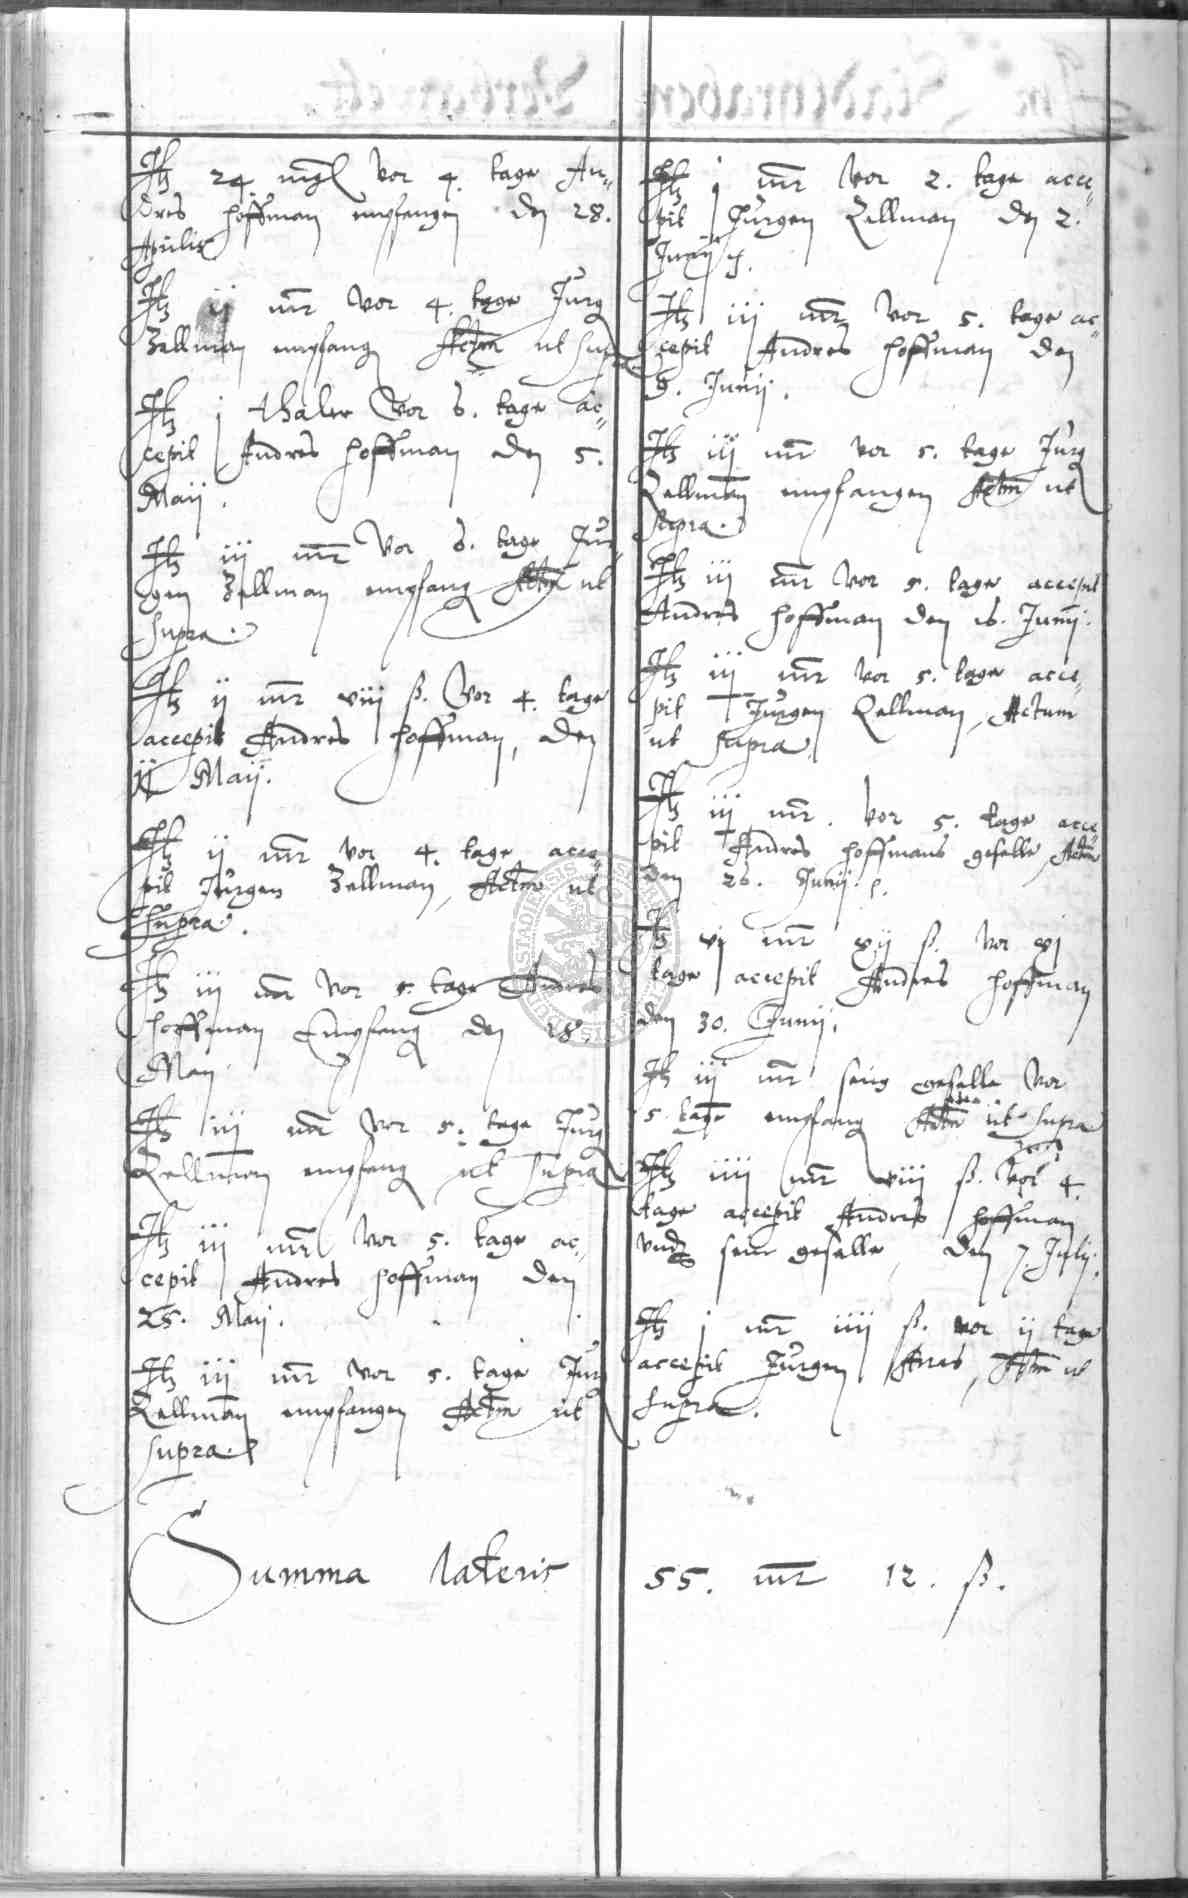 Itz 24 mgl vor 4. tage An-
dres Hoffman empfangen den 28.
Aprilis
Itz ij mr vor 4. tage Jurg
Zellman empfang Actm ut supra
Itz j thaler vor 6. tage ac-
cepit Andres Hoffman den 5.
Maij.
Itz iij mr vor 6. tage Jur-
gen Zellman empfang Actm ut
supra.
Itz ij mr viij ß. vor 4. tage
accepit Andres Hoffman, den
ij Maij.
Itz ij mr vor 4. tage acce-
pit Jurgen Zellman, Actm ut
supra.
Itz iij mr vor 5. tage Andres
Hoffman Empfang den 18.
Maij
Itz iij mr vor 5. tage Jurg
Zellman empfang ut supra
Itz iij mr vor 5. tage ac-
cepit Andres Hoffman den
25. Maij.
Itz iij mr vor 5. tage Jurg
Zellman empfangen Actm ut
supra.
Itz j mr vor 2. tage acce-
pit Jurgen Zellman den 2.
Junij.
Itz iij mr vor 5. tage ac-
cepit Andres Hoffman den
9. Junij.
Itz iij mr vor 5. tage Jurg
Zellman empfangen Actm ut
supra.
Itz iij mr vor 5. tage accepit
Andres Hoffman den 16. Junij.
Itz iij mr vor 5. tage acce-
pit Jurgen Zellman, Actum
ut supra.
Itz iij mr. vor 5. tage acce-
pit Andres Hoffmans geselle Actm
den 26. Junij.
Itz vj mr xij ß. vor xj
tage accepit Andres Hoffman
den 30. Junij.
Itz iij mr sein geselle vor
5. tage empfang Actm ut supra
Itz iiij mr viij ß. vor 4.
tage accepit Andres Hoffman
vnd sein geselle, den 7. Julij.
Itz j mr iiij ß. vor ij tage
accepit Jurgen Arres, Actm ut
supra.
Summa lateris 55. mr 12. ß.